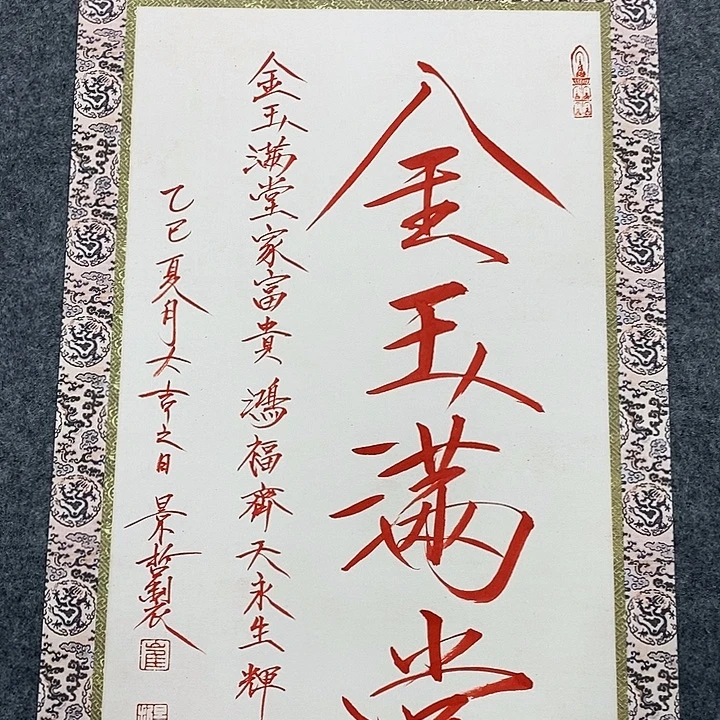 金玉满堂
金玉满堂家富貴鴻福齊天永生輝
乙巳夏月大吉之日景哲製